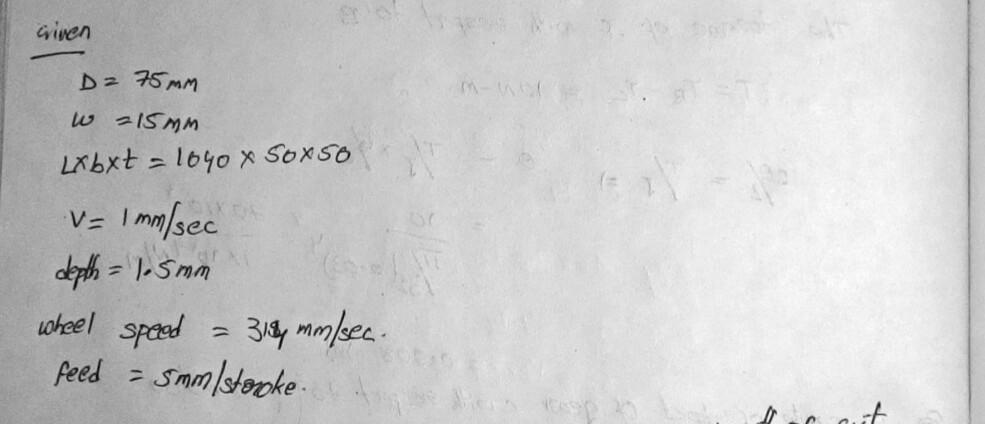 Given
D = 75mm
w = 15mm
L×b×t = 1040 × 50×50
V = 1 mm/sec
depth = 1.5mm
wheel speed = mm/sec.
feed = 5mm/stroke.